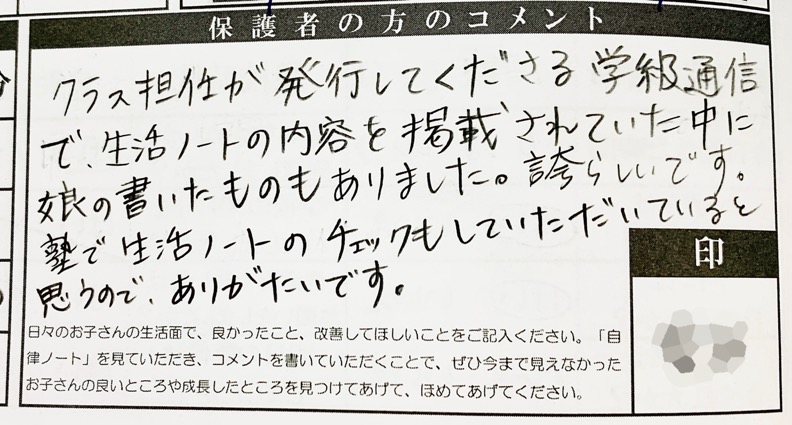 保護者の方のコメント
クラス担任が発行してくださる学級通信
で、生活ノートの内容を掲載されていた中に
娘の書いたものもありました。誇らしいです。
塾で生活ノートのチェックもしていただいていると
思うので、ありがたいです。
印
日々のお子さんの生活面で、良かったこと、改善してほしいことをご記入ください。「自
律ノート」を見ていただき、コメントを書いていただくことで、ぜひ今まで見えなかった
お子さんの良いところや成長したところを見つけてあげて、ほめてあげてください。